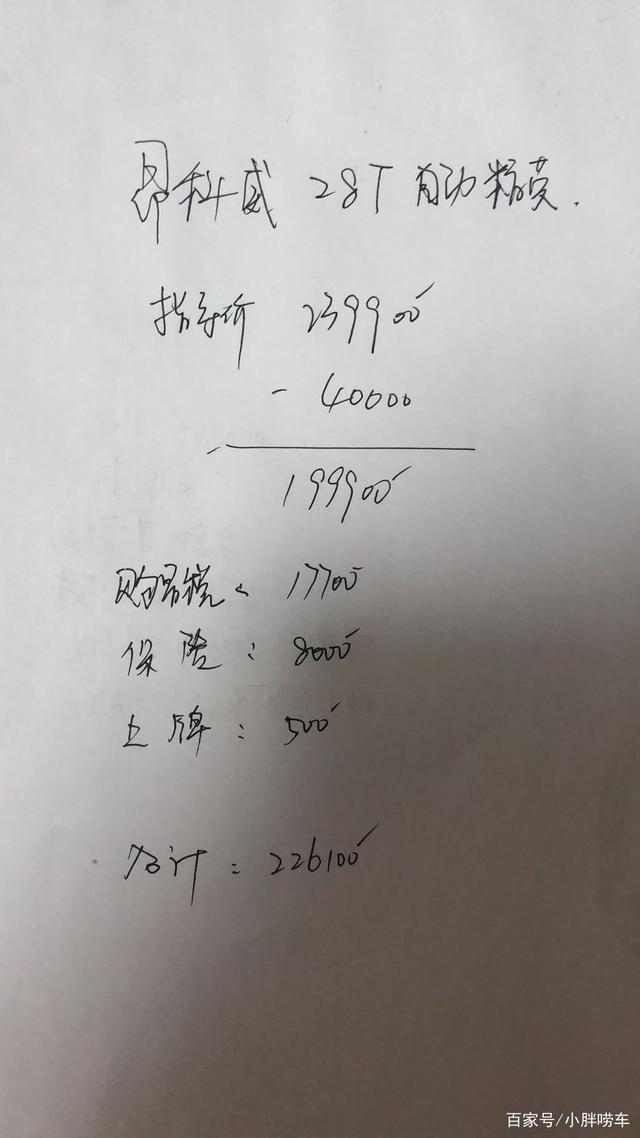 昂科威 28T 自动精英.
指导价 239900
- 40000
199900
购置税: 17700
保险: 8000
上牌: 500
合计: 226100
百家号/小胖唠车